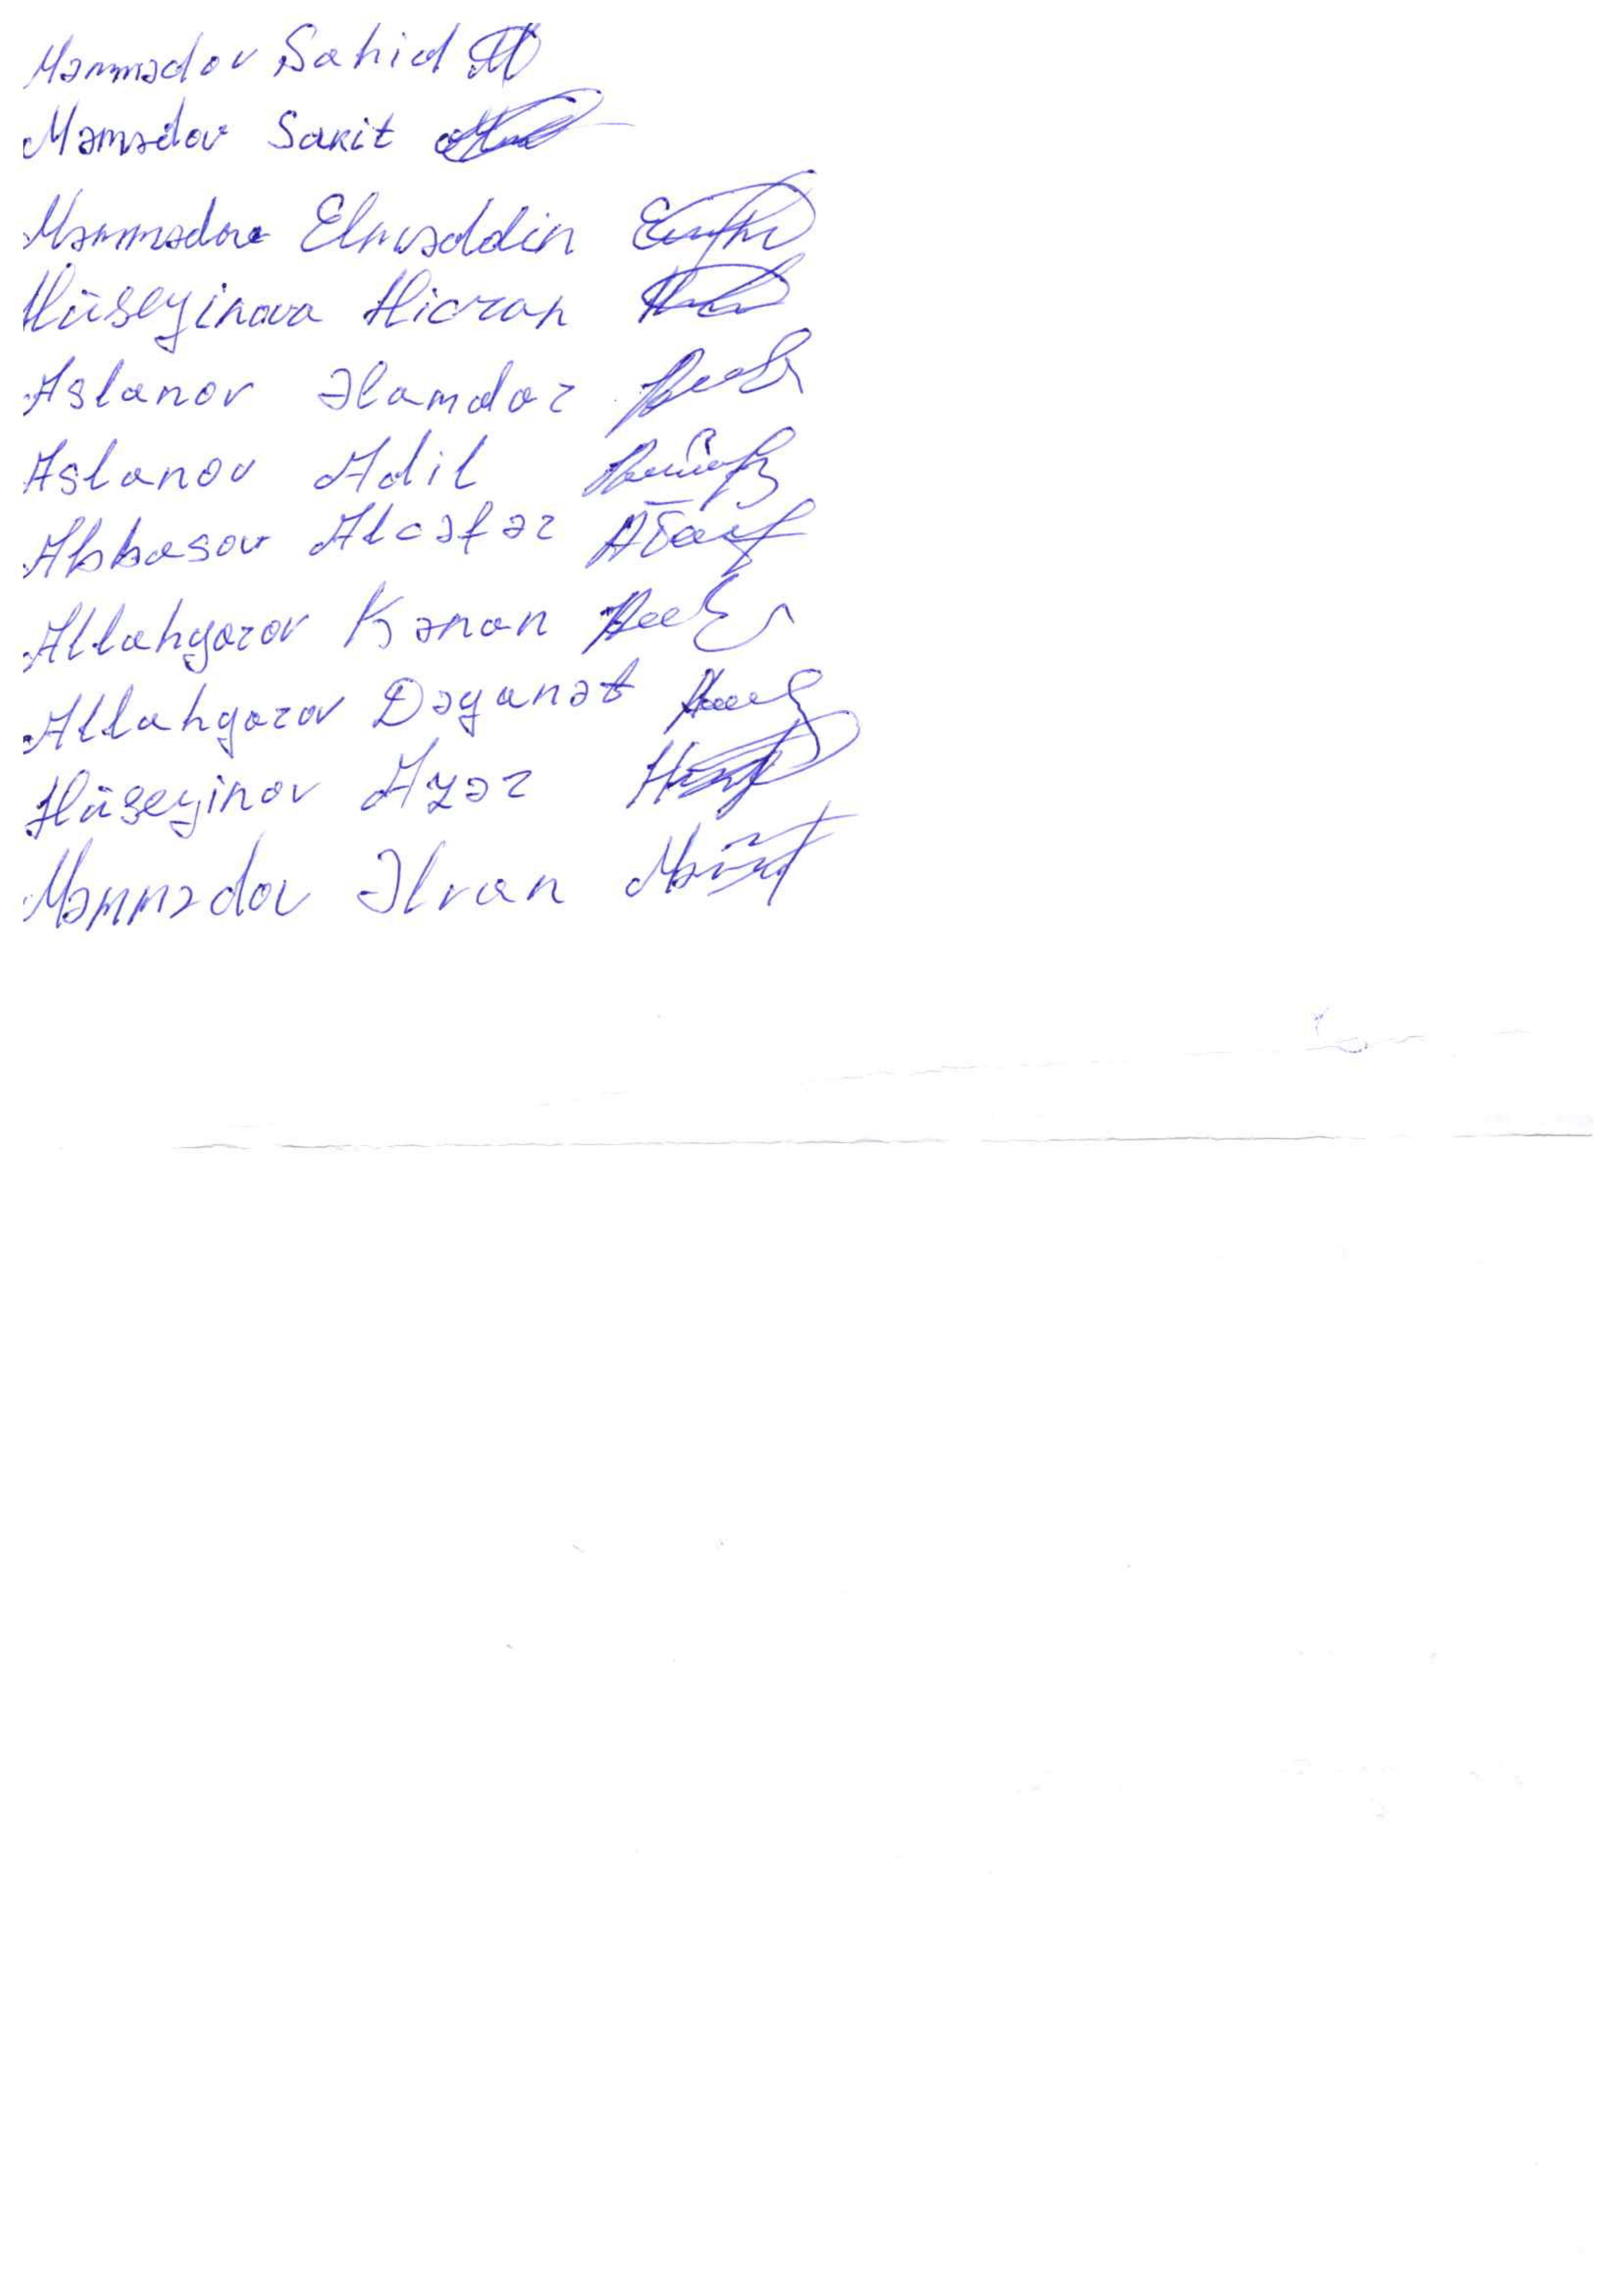 Məmmədov Sahid
Məmədov Sakit
Məmmədov Elməddin
Hüseyinova Hicran
Aslanov Əlamdar
Aslanov Adil
Abbasov Alcəfər
Allahyarov Kənan
Allahyarov Dəyanət
Hüseyinov Azər
Məmmədov Əlvan